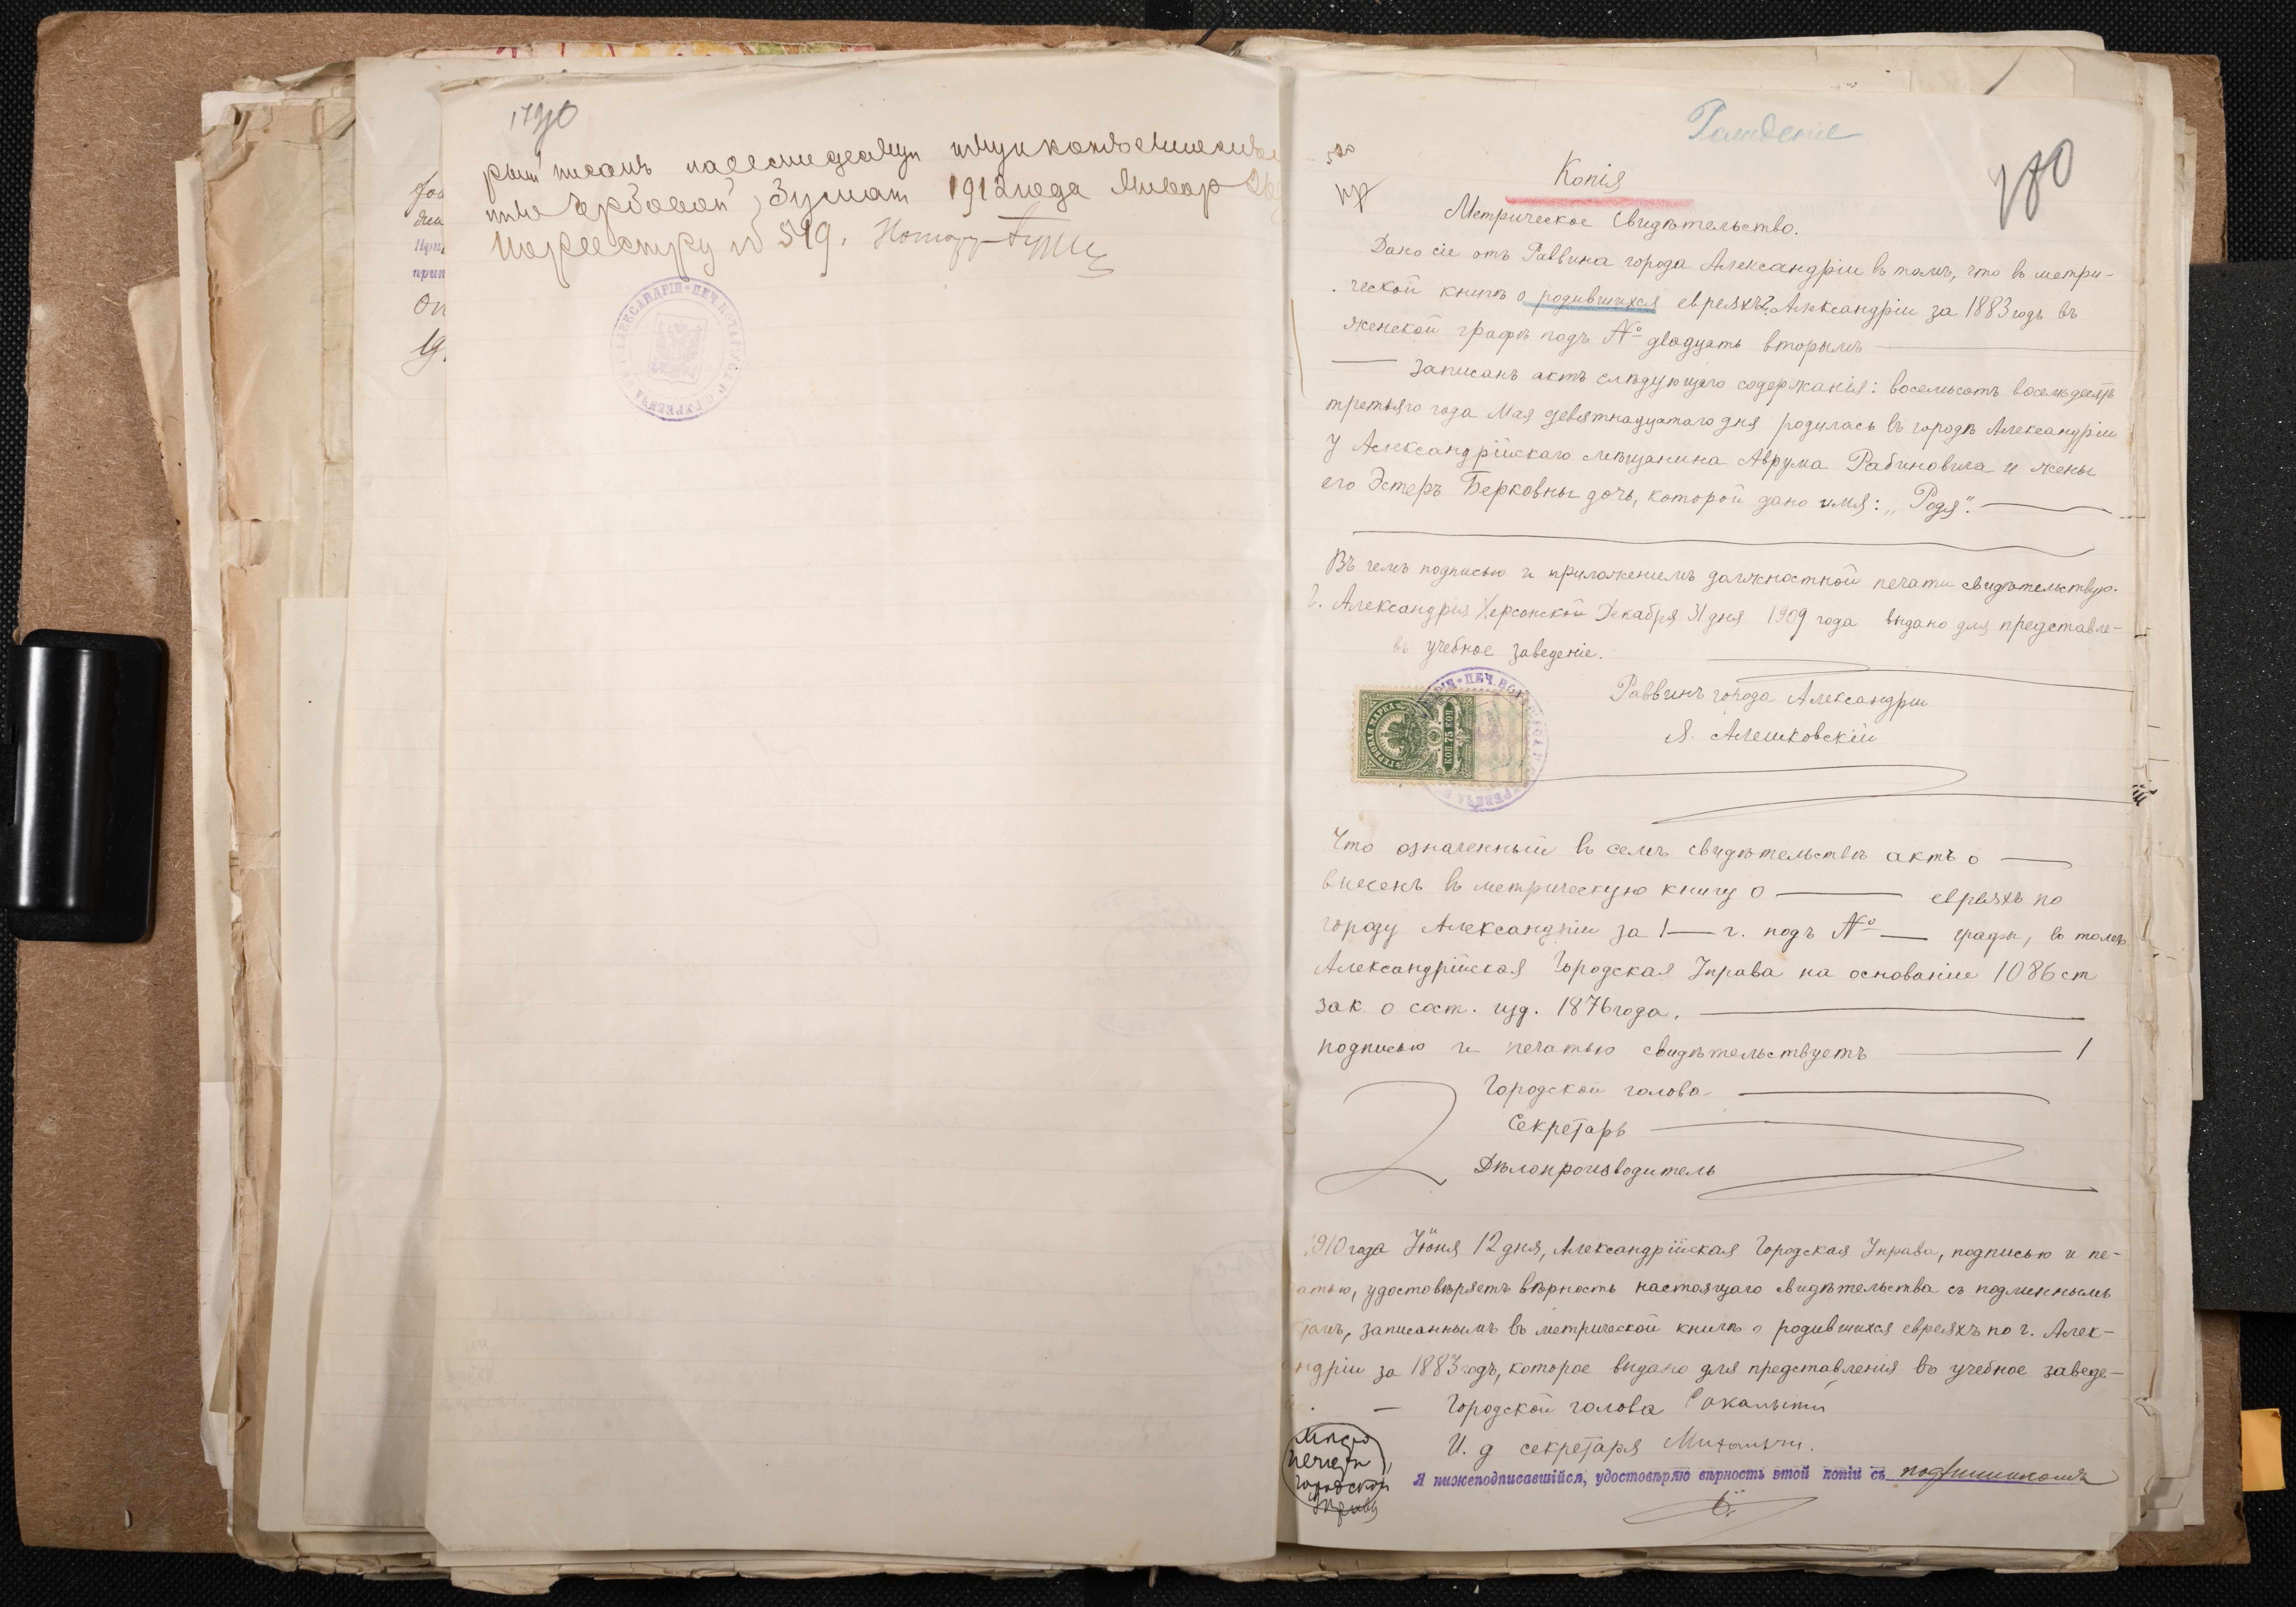 рый писанъ на семидесяти
гербовой бумаги 1912 года Января 26
По реестру № 519. Нотар
Рождение
180
Копія
Метрическое Свидѣтельство.
Дано сіе отъ Раввина города Александріи въ томъ, что въ метри-
ческой книгѣ о родившихся евреяхъ г. Александріи за 1883 годъ въ
женской графѣ подъ № двадцать вторымъ
записанъ актъ слѣдующаго содержанія: восемьсотъ восемьдесятъ
третьяго года Мая девятнадцатаго дня родилась въ городѣ Александріи
у Александрійскаго мѣщанина Аврума Рабиновича и жены
его Эстеръ Берковны дочь, которой дано имя: „Родя".
Въ чемъ подписью и приложеніемъ должностной печати свидѣтельствую.
Г. Александрія Херсонской Декабря 31 дня 1909 года выдано для представле-
въ учебное заведеніе.
Раввинъ города Александріи
Я. Алешковскій
ГЕРБОВАЯ МАРКА
75 КОП
Что означенный въ семъ свидѣтельствѣ актъ о
внесенъ въ метрическую книгу о евреяхъ по
городу Александріи за 1 г. подъ № графы, въ томъ
Александрійская Городская Управа на основаніе 1086 ст
зак. о сост. изд. 1876 года,
подписью и печатью свидѣтельствуетъ
Городской голова
Секретарь
Дѣлопроизводитель
1910 года Іюня 12 дня, Александрійская Городская Управа, подписью и пе-
атью, удостовѣряетъ вѣрность настоящаго свидѣтельства съ подлиннымъ
томъ, записаннымъ въ метрической книгѣ о родившихся евреяхъ по г. Алек-
ндріи за 1883 годъ, которое выдано для представленія въ учебное заведе-
Городской голова
И. д. секретаря
Мѣсто
печати
городской
Управы
Я нижеподписавшійся, удостовѣряю вѣрность этой копіи съ подлинникомъ